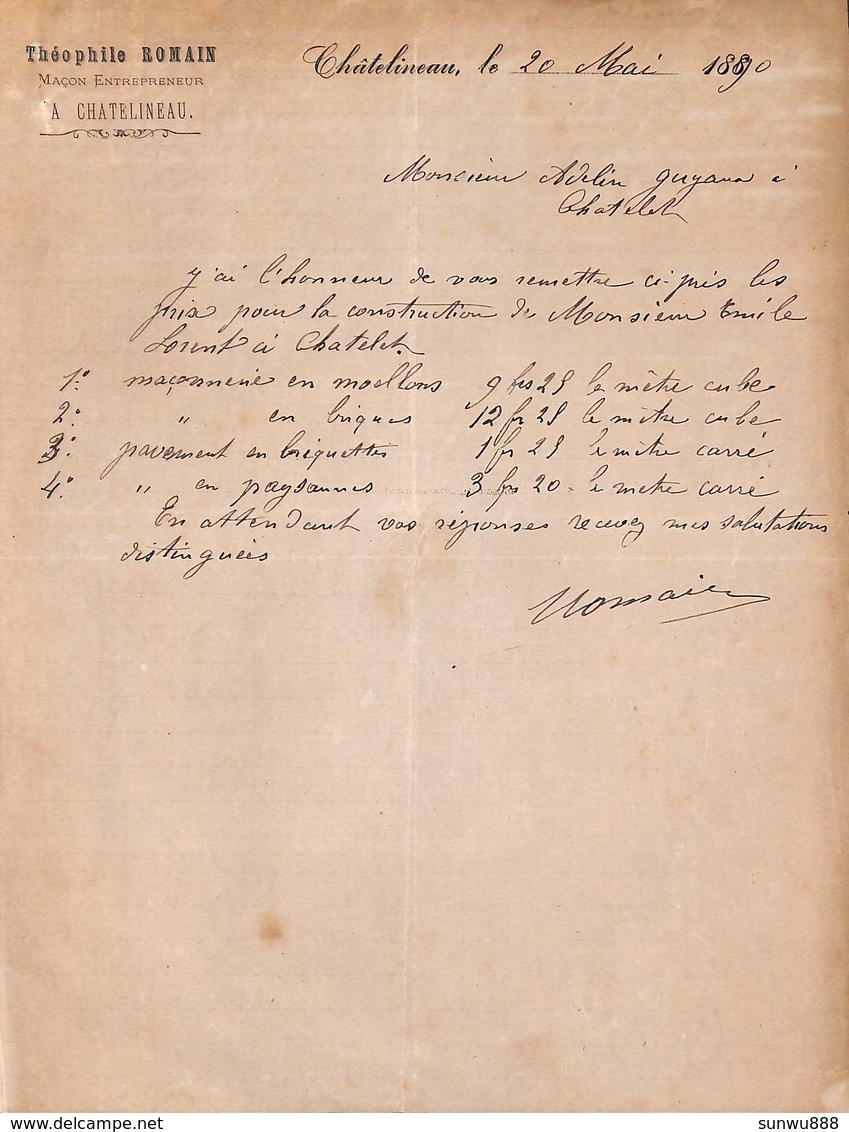 Théophile ROMAIN
MAÇON ENTREPRENEUR
A CHATELINEAU.
Châtelineau, le 20 Mai 1890
Monsieur Adelin à
Chatelet
J'ai l'honneur de vous remettre ci-près les
prix pour la construction de Monsieur Emile
Lorent à Chatelet
1° maçonnerie en moellons 9 frs 25 le mètre cube
2° " en briques 12 fr 25 le mètre cube
3° pavement en briquettes 1 fr 25 le mètre carré
4° " en paysannes 3 frs 20 - le metre carré
En attendant vos réponses recevez mes salutations
distinguées
Romain
sunwu888